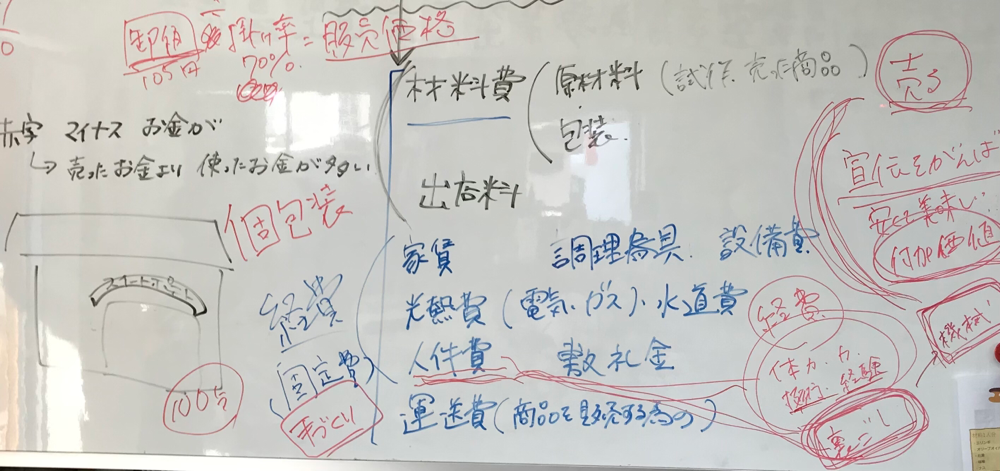 卸値 × 掛け率 = 販売価格
105円
70%
材料費
原材料 (試作 売った商品)
包装
売る
赤字 マイナス お金が
→ 売ったお金より 使ったお金が多い
出店料
宣伝をがんば
安くて美味しい
付加価値
個包装
家賃 調理器具 設備費
経費
光熱費 (電気 ガス) 水道費
経費
機械
固定費
人件費 敷礼金
体力
経験
100
手づくり
運送費 (商品を